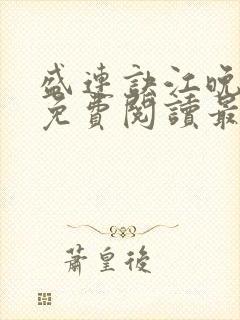 盛連訣江晚
免費閱讀最
蕭皇後